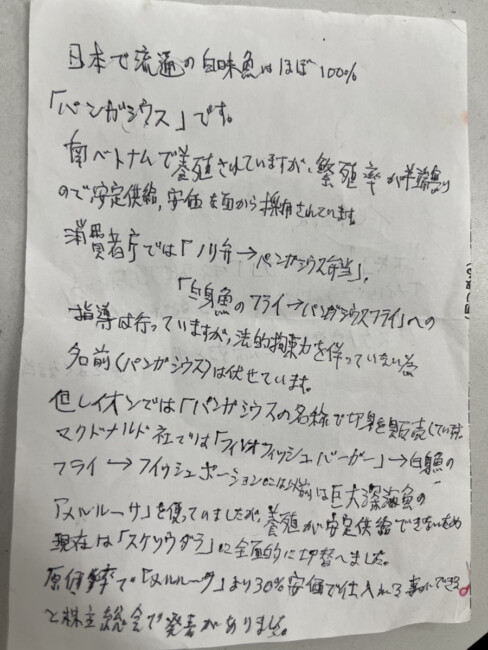 日本で流通の白味魚はほぼ100%
「パンガシウス」です。
南ベトナムで養殖されていますが、繁殖率が半端ない
ので安定供給、安価な面から採用されています。
消費者庁では「ノリ弁→パンガシウス弁当」、
「白身魚のフライ→パンガシウスフライ」への
指導は行っていますが、法的拘束力を伴っていない為
名前(パンガシウス)は伏せています。
但しイオンでは「パンガシウスの名称で切身を販売しています。
マクドナルド社では「フィレオフィッシュバーガー」→白身魚の
フライ→フィッシュポーションには以前は巨大深海魚の
「メルルーサ」を使ってのましたが、養殖が安定供給できないため
現在は「スケソウダラ」に全面的に切替へました。
原価率で「メルルーサ」より30%安価で仕入れる事ができる
と株主総会で発表がありました。